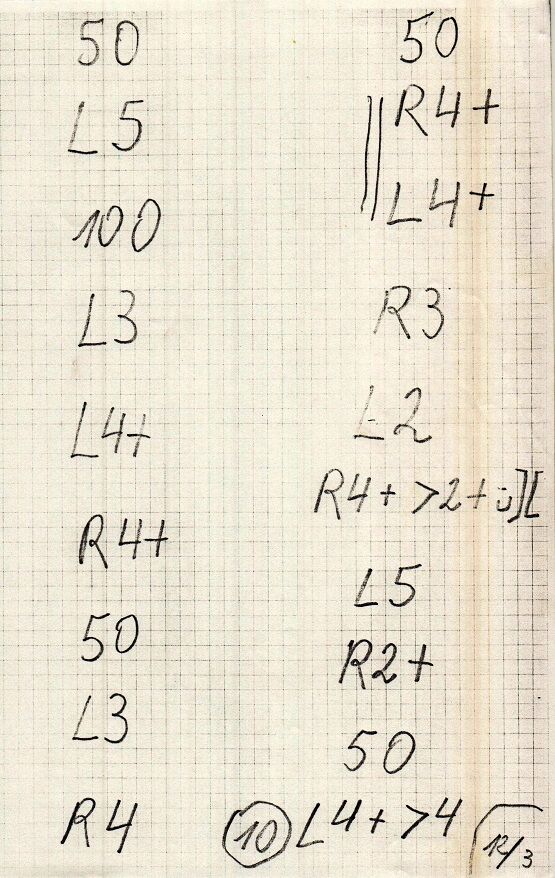 50
L5
100
L3
L4+
R4+
50
L3
R4
50
R4+
L4+
R3
L2
R4+ >2+ ü][
L5
R2+
50
10 L4+ >4
12/3